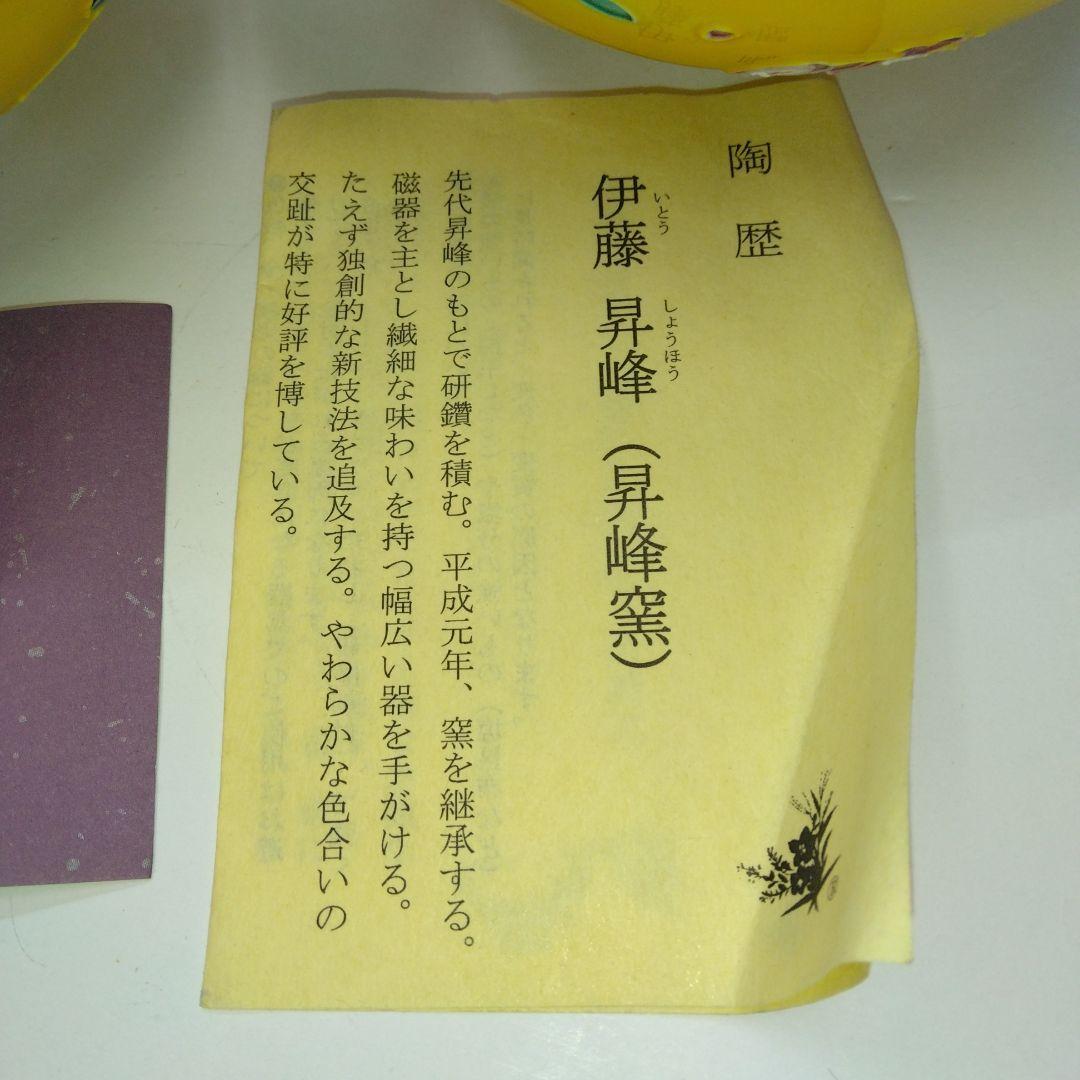 陶歴
伊藤 昇峰 (昇峰窯)
いとう しょうほう
先代昇峰のもとで研鑽を積む。平成元年、窯を継承する。
磁器を主とし繊細な味わいを持つ幅広い器を手がける。
たえず独創的な新技法を追及する。やわらかな色合いの
交趾が特に好評を博している。